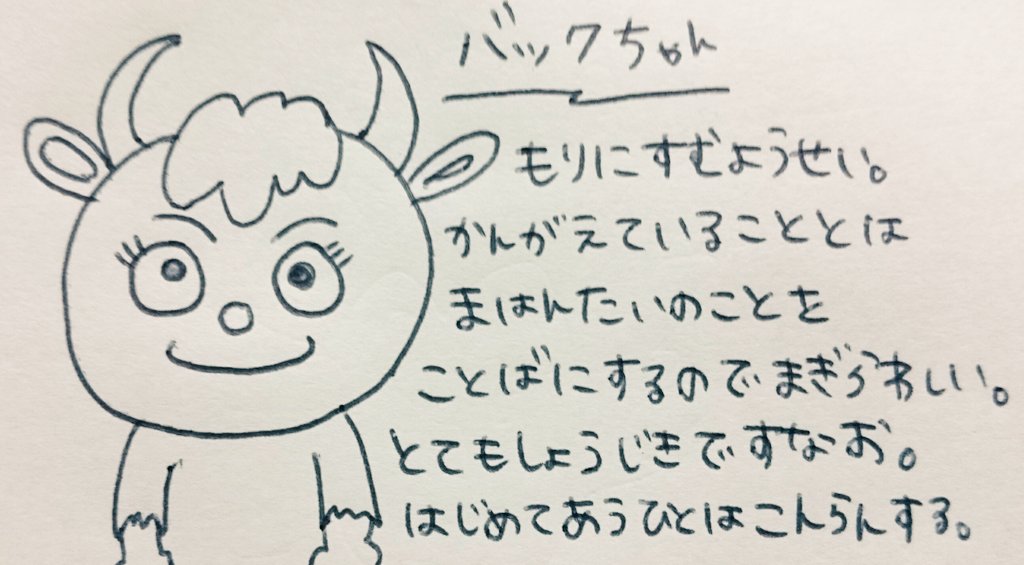 バックちゃん
もりにすむようせい。
かんがえていることとは
まはんたいのことを
ことばにするのでまぎらわしい。
とてもしょうじきですなお。
はじめてあうひとはこんらんする。